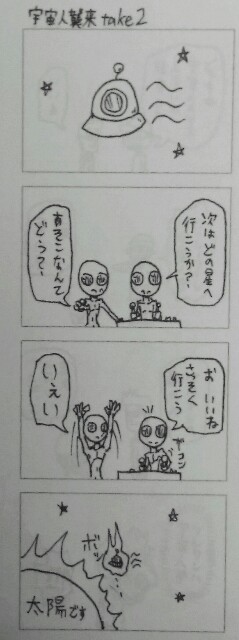 宇宙人襲来take2
次はどの星へ
行こうか？
あそこなんて
どうって〜
お いいね
さっそく
行こう
ガコン
いえい
ボッ
太陽です